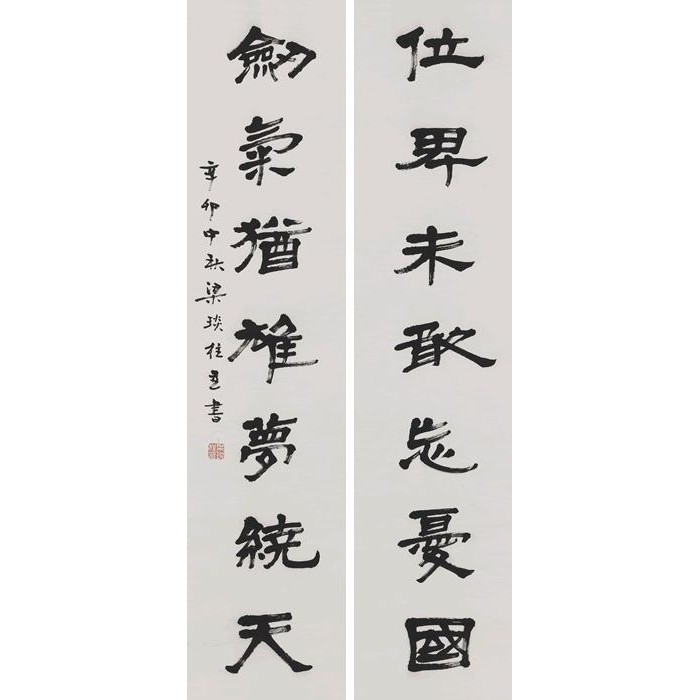 位卑未敢忘憂國
劍氣猶雄夢繞天
辛卯中秋梁琰柱並書